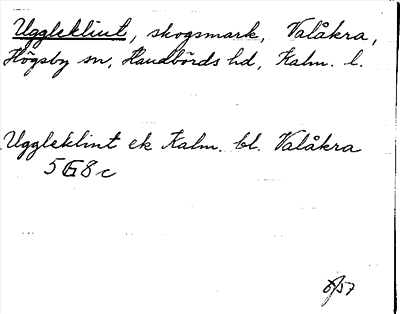 Uggleklint, skogsmark, Valåkra,
Högsby sn, Handbörds hd, Kalm. l.
Uggleklint ek Kalm. bl. Valåkra
5G8c